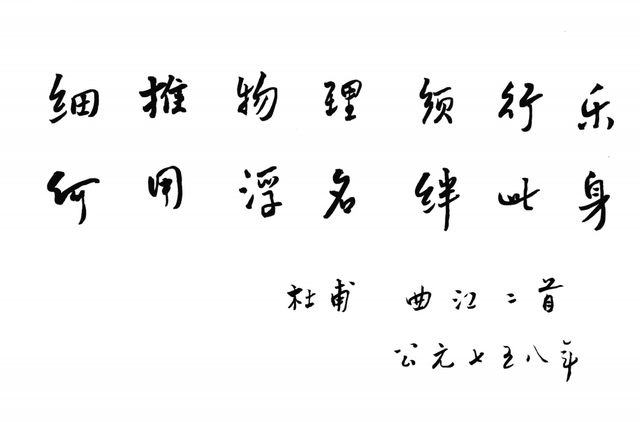 细推物理须行乐
何用浮名绊此身
杜甫 曲江二首
公元七五八年